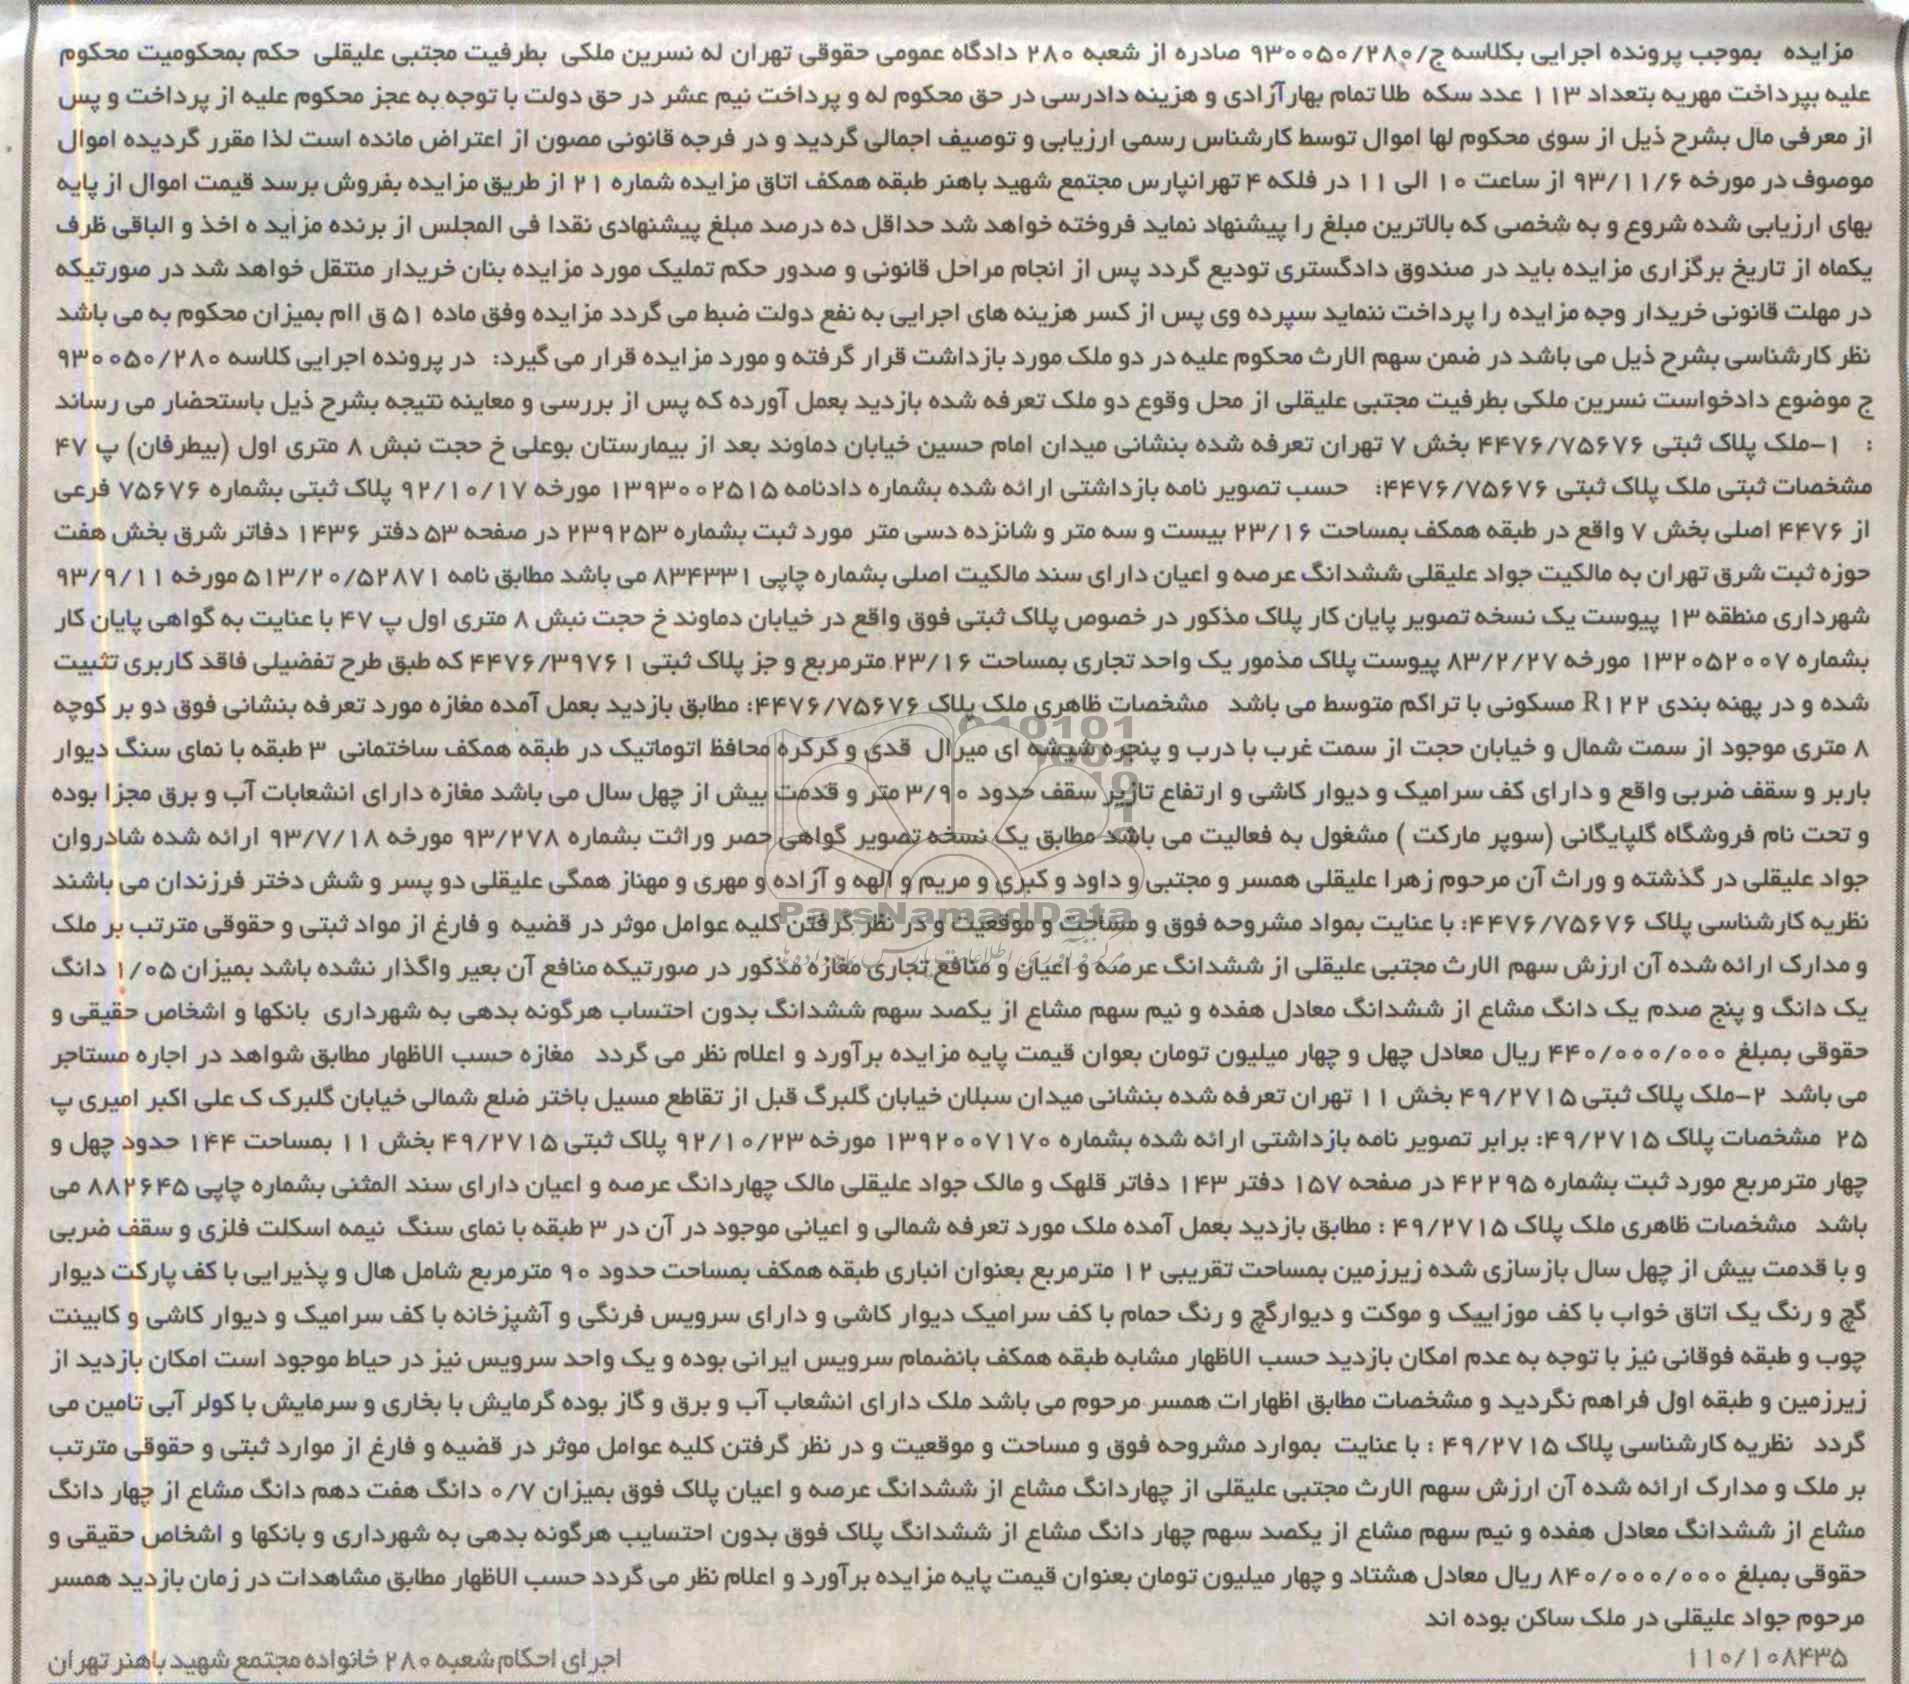 مزایده بموجب پرونده اجرایی بکلاسه ج/۹۳۰۰۵۰/۲۸۰ صادره از شعبه ۲۸۰ دادگاه عمومی حقوقی تهران له نسرین ملکی بطرفیت مجتبی علیقلی حکم بمحکومیت محکوم
علیه بپرداخت مهریه بتعداد ۱۱۳ عدد سکه طلا تمام بهارآزادی و هزینه دادرسی در حق محکوم له و پرداخت نیم عشر در حق دولت با توجه به عجز محکوم علیه از پرداخت و پس
از معرفی مال بشرح ذیل از سوی محکوم لها اموال توسط کارشناس رسمی ارزیابی و توصیف اجمالی گردید و در فرجه قانونی مصون از اعتراض مانده است لذا مقرر گردیده اموال
موصوف در مورخه ۹۳/۱۱/۶ از ساعت ۱۰ الی ۱۱ در فلکه ۴ تهرانپارس مجتمع شهید باهنر طبقه همکف اتاق مزایده شماره ۲۱ از طریق مزایده بفروش برسد قیمت اموال از پایه
بهای ارزیابی شده شروع و به شخصی که بالاترین مبلغ را پیشنهاد نماید فروخته خواهد شد حداقل ده درصد مبلغ پیشنهادی نقدا فی المجلس از برنده مزاید ه اخذ و الباقی ظرف
یکماه از تاریخ برگزاری مزایده باید در صندوق دادگستری تودیع گردد پس از انجام مراحل قانونی و صدور حکم تملیک مورد مزایده بنان خریدار منتقل خواهد شد در صورتیکه
در مهلت قانونی خریدار وجه مزایده را پرداخت ننماید سپرده وی پس از کسر هزینه های اجرایی به نفع دولت ضبط می گردد مزایده وفق ماده ۵۱ ق اام بمیزان محکوم به می باشد
نظر کارشناسی بشرح ذیل می باشد در ضمن سهم الارث محکوم علیه در دو ملک مورد بازداشت قرار گرفته و مورد مزایده قرار می گیرد: در پرونده اجرایی کلاسه ۹۳۰۰۵۰/۲۸۰
ج موضوع دادخواست نسرین ملکی بطرفیت مجتبی علیقلی از محل وقوع دو ملک تعرفه شده بازدید بعمل آورده که پس از بررسی و معاینه نتیجه بشرح ذیل باستحضار می رساند
: ۱-ملک پلاک ثبتی ۴۴۷۶/۷۵۶۷۶ بخش ۷ تهران تعرفه شده بنشانی میدان امام حسین خیابان دماوند بعد از بیمارستان بوعلی خ حجت نبش ۸ متری اول (بیطرفان) پ ۴۷
مشخصات ثبتی ملک پلاک ثبتی ۴۴۷۶/۷۵۶۷۶: حسب تصویر نامه بازداشتی ارائه شده بشماره دادنامه ۱۳۹۳۰۰۲۵۱۵ مورخه ۹۲/۱۰/۱۷ پلاک ثبتی بشماره ۷۵۶۷۶ فرعی
از ۴۴۷۶ اصلی بخش ۷ واقع در طبقه همکف بمساحت ۲۳/۱۶ بیست و سه متر و شانزده دسی متر مورد ثبت بشماره ۲۳۹۲۵۳ در صفحه ۵۳ دفتر ۱۴۳۶ دفاتر شرق بخش هفت
حوزه ثبت شرق تهران به مالکیت جواد علیقلی ششدانگ عرصه و اعیان دارای سند مالکیت اصلی بشماره چاپی ۸۳۴۳۳۱ می باشد مطابق نامه ۵۱۳/۲۰/۵۲۸۷۱ مورخه ۹۳/۹/۱۱
شهرداری منطقه ۱۳ پیوست یک نسخه تصویر پایان کار پلاک مذکور در خصوص پلاک ثبتی فوق واقع در خیابان دماوند خ حجت نبش ۸ متری اول پ ۴۷ با عنایت به گواهی پایان کار
بشماره ۱۳۲۰۵۲۰۰۷ مورخه ۸۳/۲/۲۷ پیوست پلاک مذمور یک واحد تجاری بمساحت ۲۳/۱۶ مترمربع و جز پلاک ثبتی ۴۴۷۶/۳۹۷۶۱ که طبق طرح تفضیلی فاقد کاربری تثبیت
شده و در پهنه بندی R۱۲۲ مسکونی با تراکم متوسط می باشد مشخصات ظاهری ملک پلاک ۴۴۷۶/۷۵۶۷۶: مطابق بازدید بعمل آمده مغازه مورد تعرفه بنشانی فوق دو بر کوچه
۸ متری موجود از سمت شمال و خیابان حجت از سمت غرب با درب و پنجره شیشه ای میرال قدی و کرکره محافظ اتوماتیک در طبقه همکف ساختمانی ۳ طبقه با نمای سنگ دیوار
باربر و سقف ضربی واقع و دارای کف سرامیک و دیوار کاشی و ارتفاع تازیر سقف حدود ۳/۹۰ متر و قدمت بیش از چهل سال می باشد مغازه دارای انشعابات آب و برق مجزا بوده
و تحت نام فروشگاه گلپایگانی (سوپر مارکت ) مشغول به فعالیت می باشد مطابق یک نسخه تصویر گواهی حصر وراثت بشماره ۹۳/۲۷۸ مورخه ۹۳/۷/۱۸ ارائه شده شادروان
جواد علیقلی در گذشته و وراث آن مرحوم زهرا علیقلی همسر و مجتبی و داود و کبری و مریم و الهه و آزاده و مهری و مهناز همگی علیقلی دو پسر و شش دختر فرزندان می باشند
ParsNamadData
نظریه کارشناسی پلاک ۴۴۷۶/۷۵۶۷۶: با عنایت بمواد مشروحه فوق و مساحت و موقعیت و در نظر گرفتن کلیه عوامل موثر در قضیه و فارغ از مواد ثبتی و حقوقی مترتب بر ملک
و مدارک ارائه شده آن ارزش سهم الارث مجتبی علیقلی از ششدانگ عرصه و اعیان و منافع تجاری مغازه مذکور در صورتیکه منافع آن بعیر واگذار نشده باشد بمیزان ۱/۰۵ دانگ
یک دانگ و پنج صدم یک دانگ مشاع از ششدانگ معادل هفده و نیم سهم مشاع از یکصد سهم ششدانگ بدون احتساب هرگونه بدهی به شهرداری بانکها و اشخاص حقیقی و
حقوقی بمبلغ ۴۴۰/۰۰۰/۰۰۰ ریال معادل چهل و چهار میلیون تومان بعوان قیمت پایه مزایده برآورد و اعلام نظر می گردد مغازه حسب الاظهار مطابق شواهد در اجاره مستاجر
می باشد ۲-ملک پلاک ثبتی ۴۹/۲۷۱۵ بخش ۱۱ تهران تعرفه شده بنشانی میدان سبلان خیابان گلبرگ قبل از تقاطع مسیل باختر ضلع شمالی خیابان گلبرک ک علی اکبر امیری پ
۲۵ مشخصات پلاک ۴۹/۲۷۱۵: برابر تصویر نامه بازداشتی ارائه شده بشماره ۱۳۹۲۰۰۷۱۷۰ مورخه ۹۲/۱۰/۲۳ پلاک ثبتی ۴۹/۲۷۱۵ بخش ۱۱ بمساحت ۱۴۴ حدود چهل و
چهار مترمربع مورد ثبت بشماره ۴۲۲۹۵ در صفحه ۱۵۷ دفتر ۱۴۳ دفاتر قلهک و مالک جواد علیقلی مالک چهاردانگ عرصه و اعیان دارای سند المثنی بشماره چاپی ۸۸۲۶۴۵ می
باشد مشخصات ظاهری ملک پلاک ۴۹/۲۷۱۵ : مطابق بازدید بعمل آمده ملک مورد تعرفه شمالی و اعیانی موجود در آن در ۳ طبقه با نمای سنگ نیمه اسکلت فلزی و سقف ضربی
و با قدمت بیش از چهل سال بازسازی شده زیرزمین بمساحت تقریبی ۱۲ مترمربع بعنوان انباری طبقه همکف بمساحت حدود ۹۰ مترمربع شامل هال و پذیرایی با کف پارکت دیوار
گچ و رنگ یک اتاق خواب با کف موزاییک و موکت و دیوارگچ و رنگ حمام با کف سرامیک دیوار کاشی و دارای سرویس فرنگی و آشپزخانه با کف سرامیک و دیوار کاشی و کابینت
چوب و طبقه فوقانی نیز با توجه به عدم امکان بازدید حسب الاظهار مشابه طبقه همکف بانضمام سرویس ایرانی بوده و یک واحد سرویس نیز در حیاط موجود است امکان بازدید از
زیرزمین و طبقه اول فراهم نگردید و مشخصات مطابق اظهارات همسر مرحوم می باشد ملک دارای انشعاب آب و برق و گاز بوده گرمایش با بخاری و سرمایش با کولر آبی تامین می
گردد نظریه کارشناسی پلاک ۴۹/۲۷۱۵ : با عنایت بموارد مشروحه فوق و مساحت و موقعیت و در نظر گرفتن کلیه عوامل موثر در قضیه و فارغ از موارد ثبتی و حقوقی مترتب
بر ملک و مدارک ارائه شده آن ارزش سهم الارث مجتبی علیقلی از چهاردانگ مشاع از ششدانگ عرصه و اعیان پلاک فوق بمیزان ۰/۷ دانگ هفت دهم دانگ مشاع از چهار دانگ
مشاع از ششدانگ معادل هفده و نیم سهم مشاع از یکصد سهم چهار دانگ مشاع از ششدانگ پلاک فوق بدون احتسایب هرگونه بدهی به شهرداری و بانکها و اشخاص حقیقی و
حقوقی بمبلغ ۸۴۰/۰۰۰/۰۰۰ ریال معادل هشتاد و چهار میلیون تومان بعنوان قیمت پایه مزایده برآورد و اعلام نظر می گردد حسب الاظهار مطابق مشاهدات در زمان بازدید همسر
مرحوم جواد علیقلی در ملک ساکن بوده اند
۱۱۰/۱۰۸۴۳۵ اجرای احکام شعبه ۲۸۰ خانواده مجتمع شهید باهنر تهران